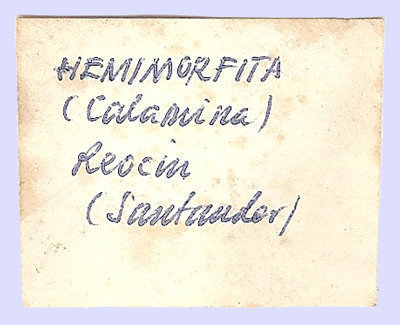 HEMIMORFITA
(Calamina)
Reocin
(Santander)